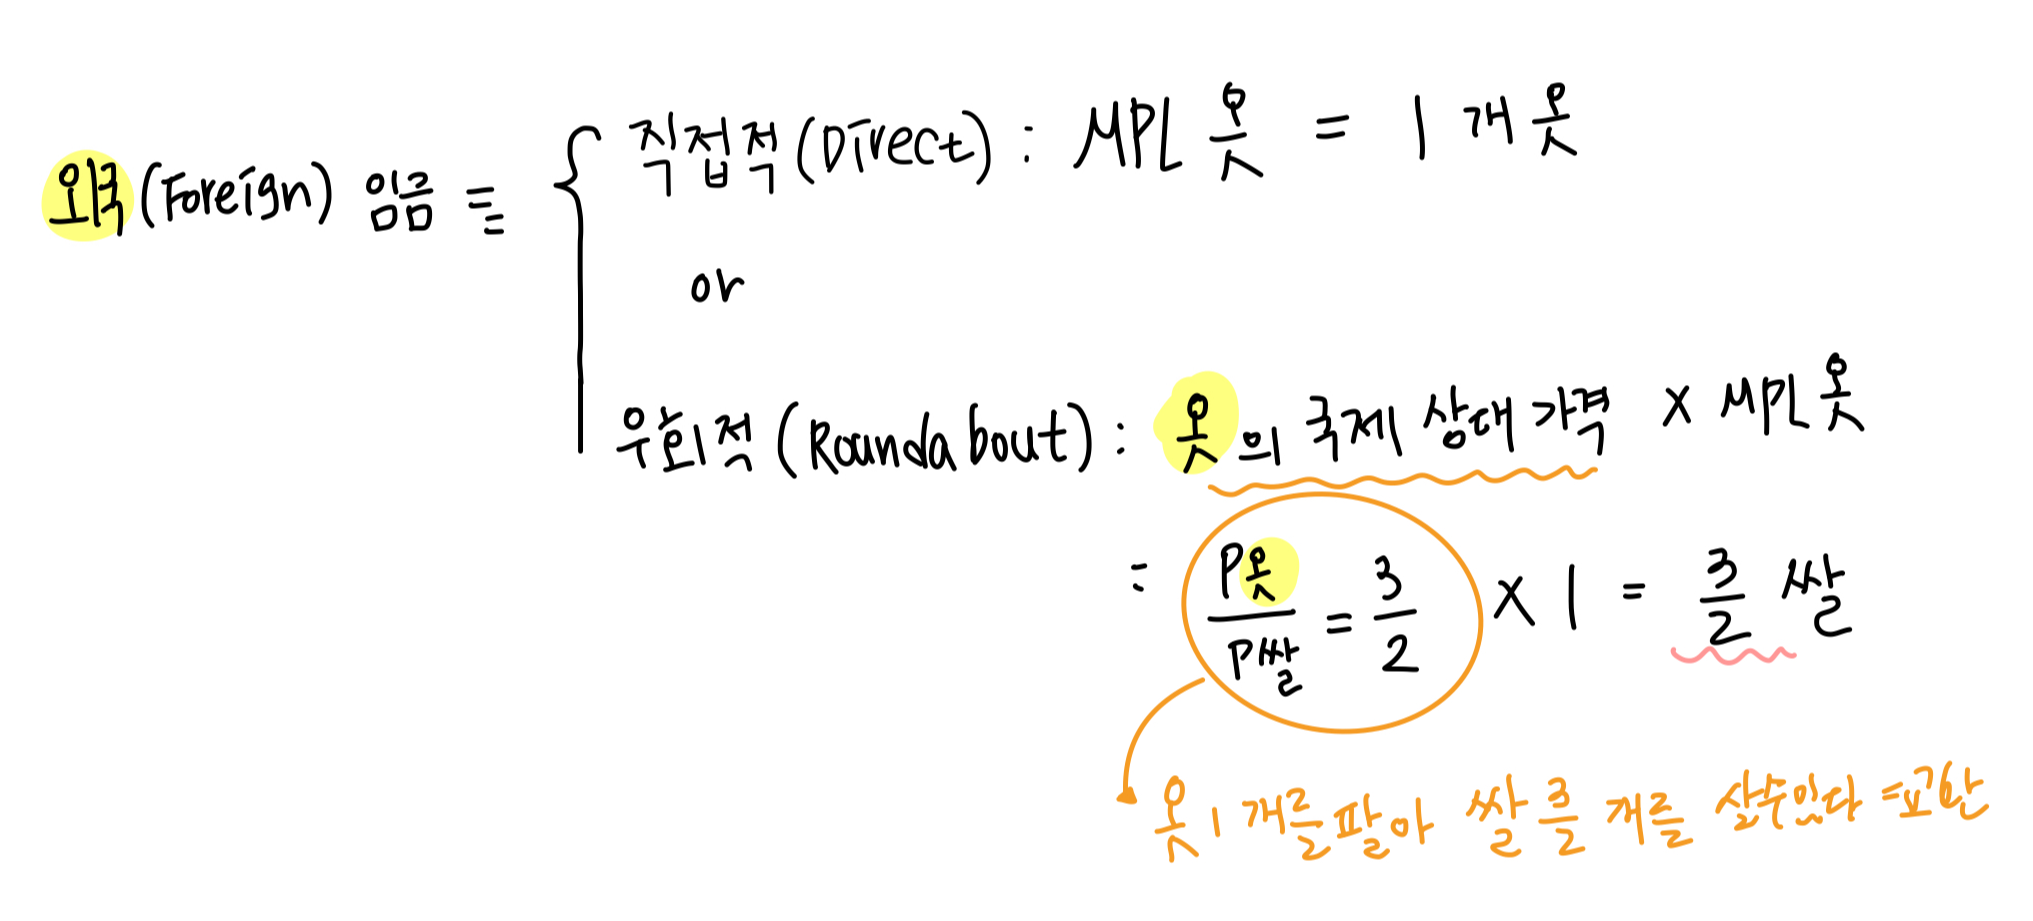 외국 (Foreign) 임금 = { 직접적 (Direct) : MPL옷 = 1개 옷
or
우회적 (Roundabout) : 옷의 국제 상대 가격 × MPL옷
= P옷/P쌀 = 3/2 × 1 = 3/2 쌀
옷 1개를 팔아 쌀 3/2 개를 살수있다 = 교환